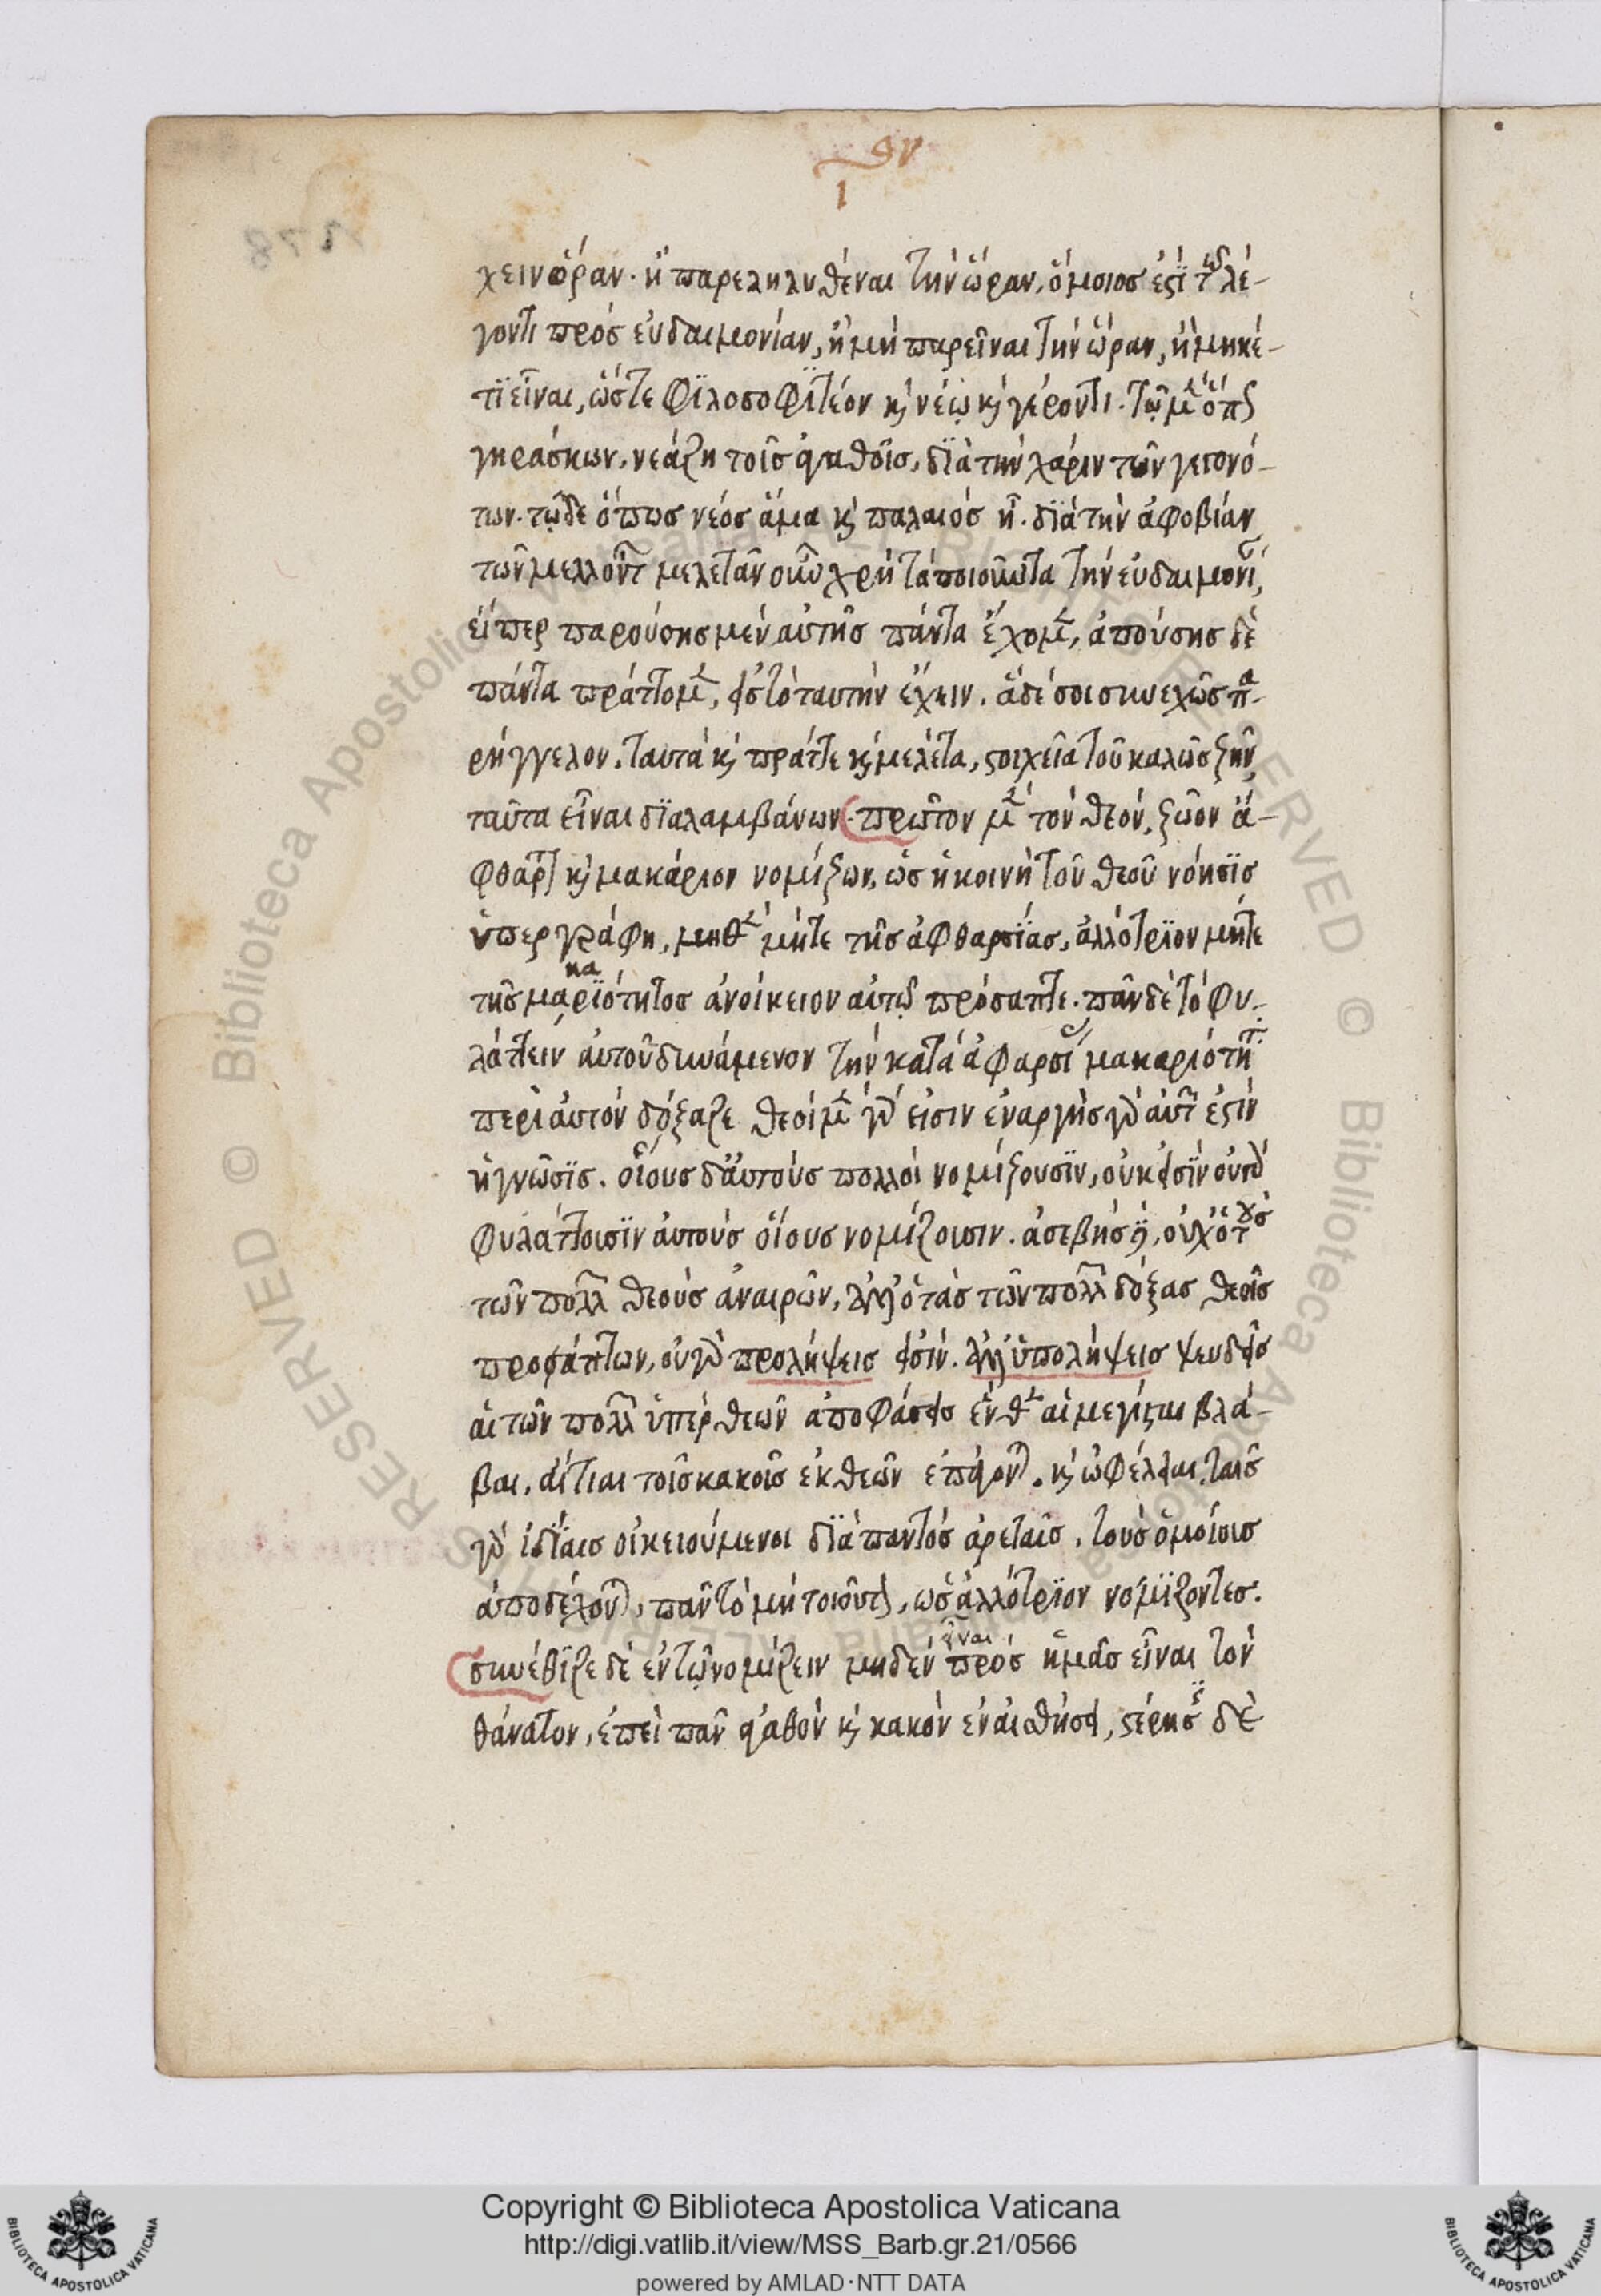 χειν ὥραν· ἢ παρεληλυθέναι τὴν ὥραν, ὅμοιος ἐστὶ τῷ λέ-
γοντι πρὸς εὐδαιμονίαν, ἢ μὴ παρεῖναι τὴν ὥραν, ἢ μηκέ-
τι εἶναι, ὥστε φιλοσοφιτέον κ νέῳ κ γέροντι· τῷ μὲν ὅπως
γηράσκων, νεάζη τοῖς ἀγαθοῖς, διὰ τὴν χάριν τῶν γεγονό-
των· τῷ δε ὅπως νέος ἅμα κ παλαιὸς ἦ· διὰ τὴν ἀφοβίαν
τῶν μελλόντ μελετᾶν οὖν χρὴ τὰ ποιοῦντα τὴν εὐδαιμονί,
εἴπερ παρούσης μὲν αὐτῆς πάντα ἔχομεν, ἀπούσης δὲ
πάντα πράττομεν, εἰς τὸ ταυτὴν ἔχειν. ἃ δέ σοι συνεχῶς πα-
ρήγγελον. ταυτὰ κ πράττε κ μελέτα, στοιχεῖα τοῦ καλῶς ζῆν
ταῦτα εἶναι διαλαμβάνων· πρῶτον μὲν τὸν θεόν, ζῶον ἄ-
φθαρτ κ μακάριον νομίζων, ὡς ἡ κοινὴ τοῦ θεοῦ νόησις
ὑπεργράφη, μηθὲν μήτε τῆς ἀφθαρσίας, ἀλλότριον μήτε
τῆς μακαριότητος ἀνοίκειον αὐτῷ πρόσαπτε· πᾶν δὲ τὸ φυ-
λάττειν αὐτοῦ δυνάμενον τὴν κατὰ ἀφαρσί μακαριότητ
περὶ αὐτὸν δόξαζε θεοὶ μὲν γὰρ εἰσιν ἐναργὴς γὰρ αὐτ ἐστὶν
ἡ γνῶσις. οἵους δ' αὐτοὺς πολλοὶ νομίζουσιν, οὐκ εἰσὶν οὐ γὰρ
φυλάττουσιν αὐτοὺς οἵους νομίζουσιν. ἀσεβὴς δ, οὐχ ὁ τοὺς
τῶν πολλ θεοὺς ἀναιρῶν, ἀλλ' ὁ τὰς τῶν πολλ δόξας θεοῖς
προσάπτων, οὐ γὰρ προλήψεις εἰσίν. ἀλλ' ὑπολήψεις ψευδεῖς
αἱ τῶν πολλ ὑπὲρ θεῶν ἀποφάσεις ἔνθεν αἱ μεγίσται βλά-
βαι, αἴτιαι τοῖς κακοῖς ἐκ θεῶν ἐπάγοντ. κ ὠφέλειαι, ταῖς
γὰρ ἰδίαις οἰκειούμενοι διὰ παντὸς ἀρεταῖς, τοὺς ὁμοίοις
ἀποδέχοντ, πᾶν τὸ μὴ τοιοῦτ, ὡς ἀλλότριον νομίζοντες.
συνέθιζε δὲ ἐν τῷ νομίζειν μηδὲν εἶναι πρὸς ἡμᾶς εἶναι τὸν
θάνατον, ἐπεὶ πᾶν ἀγαθὸν κ κακὸν ἐν αἰσθήσει, στέρησ δὲ
Copyright © Biblioteca Apostolica Vaticana
http://digi.vatlib.it/view/MSS_Barb.gr.21/0566
powered by AMLAD·NTT DATA